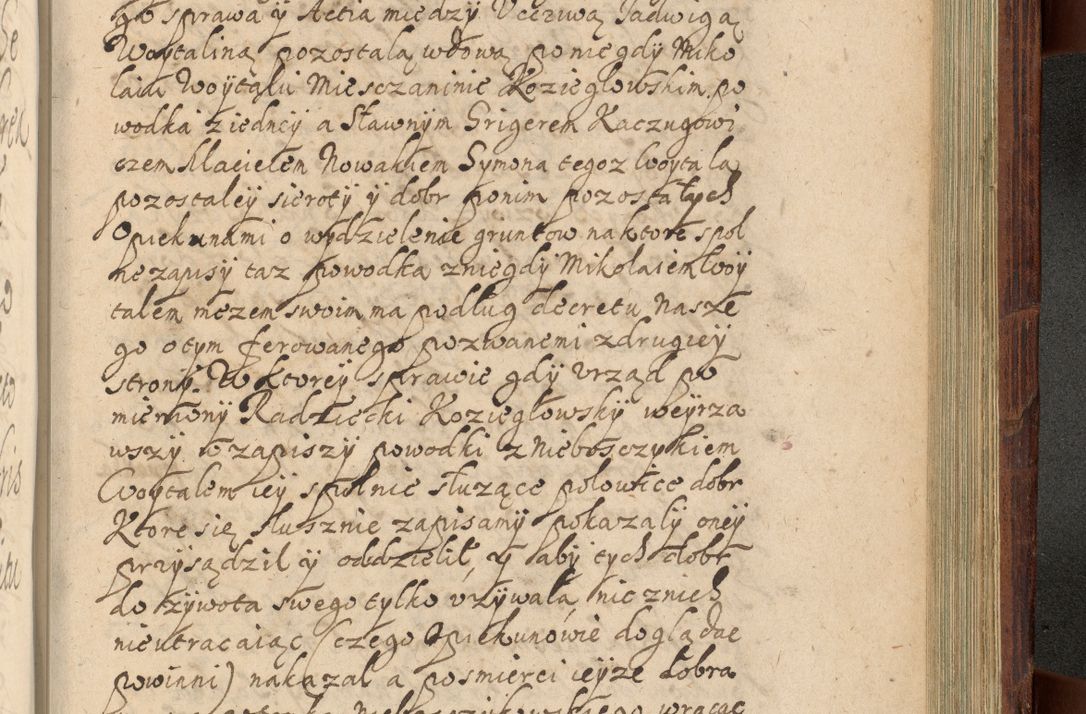 go sprawa ÿ Actia między Vcczıwą Jadwigą
Woÿtalina pozostałą wdową po niegdÿ Miko
laiu Woÿtalu Miesczaninie Kozieglowskim po
wodka z iedneÿ a Sławnÿm Grigerem Kaczugowi
czem Maciełem Nowakiem Sÿmona tegoz Woÿtala
pozostaleÿ sierotÿ ÿ dobr ponim pozostałÿch
Opiekunami o wÿdzielenie gruntow na ktore spol
ne zapisÿ taz powodka z niegdÿ Mikolaiem Woÿ
talem męzem swoim ma podług decretu nasze
go otÿm ferowanego pozwanemi zdrugieÿ
stronÿ. W ktoreÿ sprawie gdÿ vrząd po
mienionÿ Radziecki Kozieglowskÿ weÿrza
wszÿ w zapiszÿ powodki z Nieboszczÿkiem
Woÿtalem ieÿ spolnie służące polowice dobr
Ktore się słusznie zapisamÿ pokazalÿ oneÿ
przÿsądził ÿ oddzielił, ÿ abÿ tÿch dobr
do zÿwota swego tÿlko vzÿwała, nic znich
nieutracaiąc (czego Opiekunowie doglądac
powinni) nakazal a posmierci ieÿze dobra